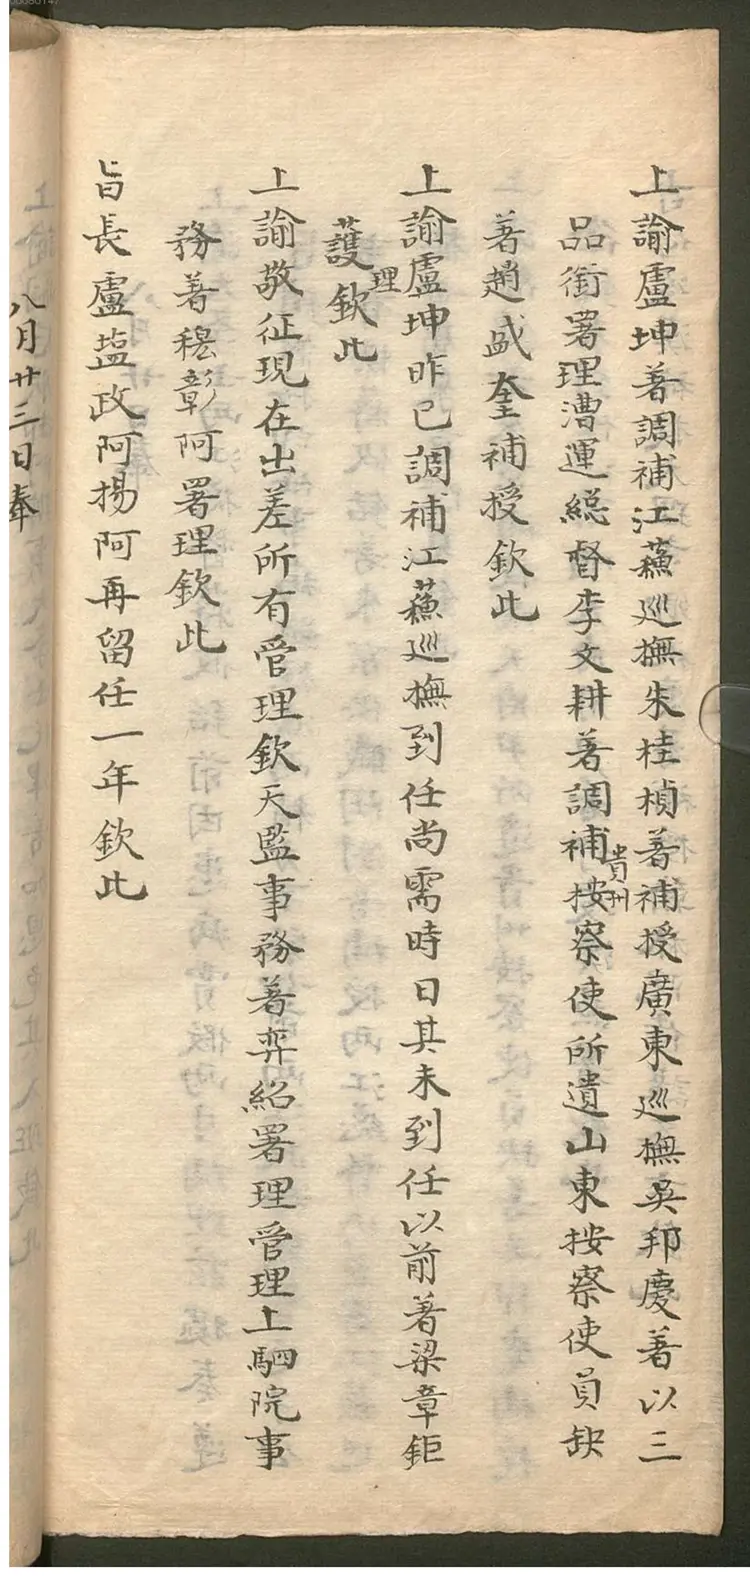 上諭盧坤著調補江蘇巡撫朱桂楨著補授廣東巡撫吳邦慶著以三
品銜署理漕運総督李文耕著調補貴州按察使所遺山東按察使員缺
著趙盛奎補授欽此
上諭盧坤昨已調補江蘇巡撫到任尚需時日其未到任以前著梁章鉅
護理欽此
上諭敬征現在出差所有管理欽天監事務著奕紹署理管理上駟院事
務著穆彰阿署理欽此
旨長盧塩政阿揚阿再留任一年欽此
八月廿三日奉